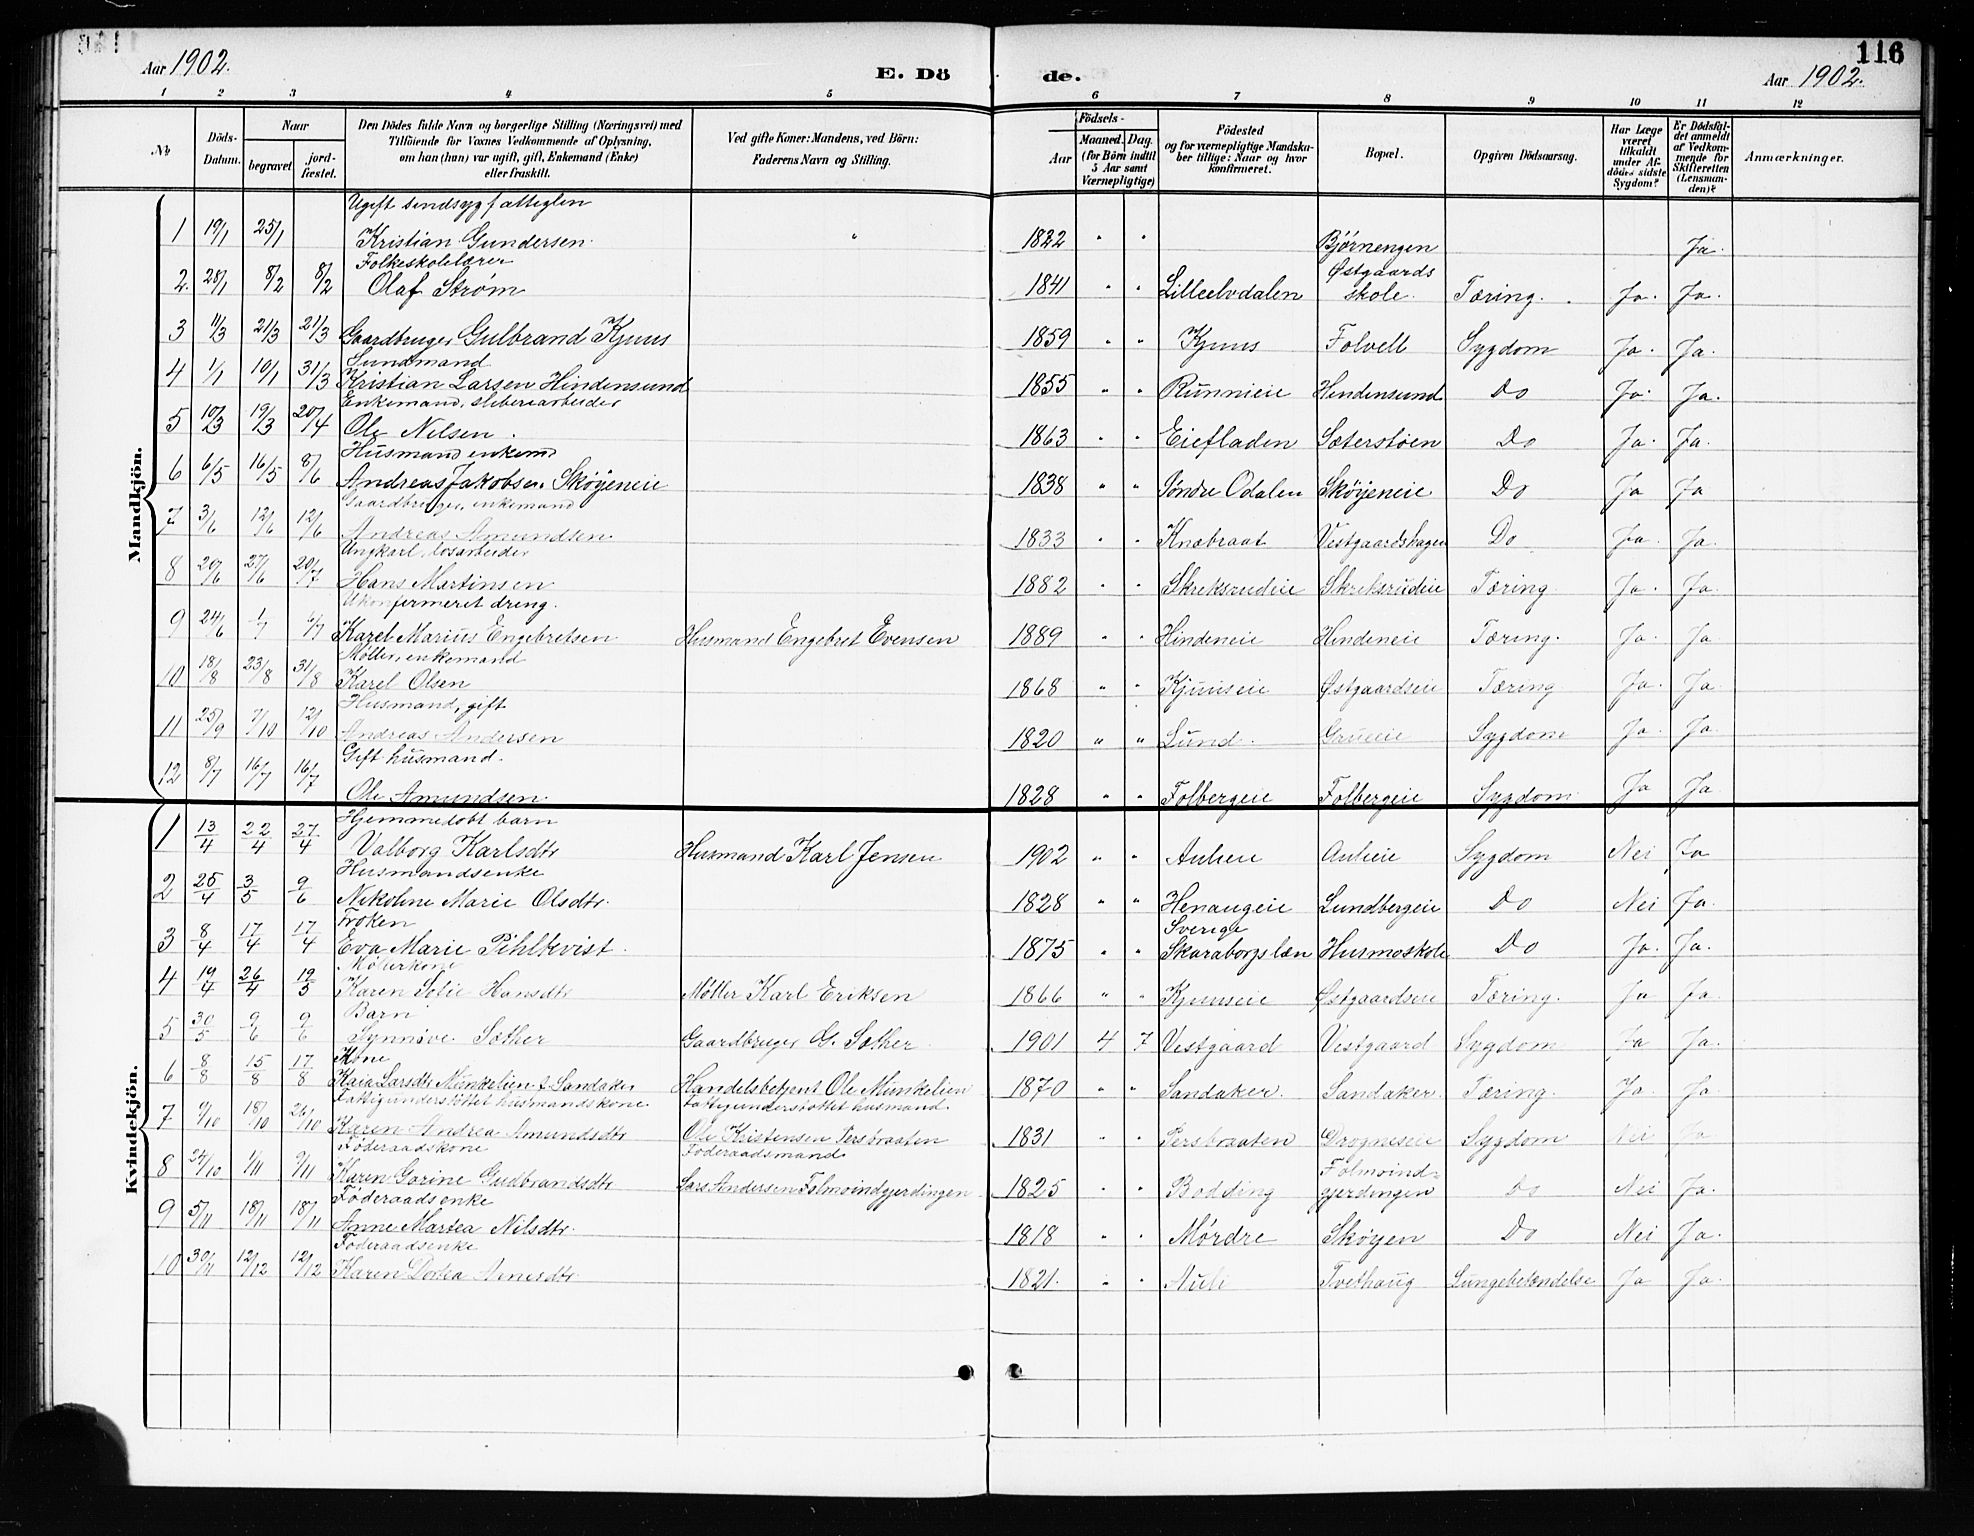 116
Aar 1902.
E. Dö de.
Aar 1902.
1 2 3 4 5 6 7 8 9 10 11 12
№
Döds-Datum.
Naar
begravet.
jord-fæstet.
Den Dödes fulde Navn og borgerlige Stilling (Næringsvei) med
Tilföiende for Voxnes Vedkommende af Oplysning,
om han (hun) var ugift, gift, Enkemand (Enke)
eller fraskilt.
Ved gifte Koner: Mandens, ved Börn:
Faderens Navn og Stilling.
Födsels-
Aar
Maaned. Dag.
(for Börn indtil
5 Aar samt
Værnepligtige)
Födested
og for værnepligtige Mandskaber tillige: Naar og hvor
konfirmeret.
Bopæl.
Opgiven Dödsaarsag.
Har Læge
været
tilkaldt
under Afdödes sidste
Sygdom?
Er Dödsfaldet anmeldt
af Vedkommende for
Skifteretten
(Lensmanden)?
Anmærkninger.
Mandkjön.
Ugift sindsyg fattiglem
1 19/1 25/1 Kristian Gundersen " 1822 " " Bjørnengen Ja.
Folkeskolelærer Østgaards
2. 28/1 8/2 8/2 Olaf Strøm 1841 " " Lilleelvdalen skole. Tæring. Ja. Ja.
3 11/3 21/3 21/3 Gaardbruger Gulbrand Kjuus 1859 " " Kjuus Folvell Sygdom Ja. Ja.
Sundmand
4 1/1 10/1 31/3 Kristian Larsen Hindensund 1855 " " Runnieie Hindensund Do Ja. Ja.
Enkemand, sliberiarbeider
5 10/3 19/3 20/4 Ole Nilsen. 1863 " " Eiefladen Sæterstøen Do Ja. Ja.
Husmand enkemd
6 6/5 16/5 8/6 Andreas Jakobsen Skøyeneie 1838 " " Søndre Odalen Skøyeneie Do Ja Ja
Gaardbruger, enkemand
7 3/6 12/6 12/6 Andreas Amundsen 1833 " " Knæbraat Vestgaardshagen Do Ja. Ja.
Ungkarl, løsarbeider
8 20/6 27/6 20/7 Hans Martinsen 1882 " " Skreksrudeie Skreksrudeie Tæring. Ja. Ja.
Ukonfirmeret dreng.
9 24/6 1/7 /7 Karel Marius Engebretsen Husmand Engebret Evensen 1889 " " Hindeneie Hindeneie Tæring. Ja. Ja
Møller, enkemand
10 18/8 23/8 31/8 Karel Olsen 1868 " " Kjuuseie Østgaardseie Tæring Ja. Ja.
Husmand, gift
11 25/9 7/10 12/10 Andreas Andersen 1820 " " Lund. Grueeie Sygdom Ja. Ja.
Gift husmand.
12 8/7 16/7 16/7 Ole Amundsen. 1828 " " Folbergeie Folbergeie Sygdom Ja Ja
Kvindekjön.
Hjemmedøbt barn
1 13/4 22/4 27/4 Valborg Karlsdtr Husmand Karl Jensen 1902 " " Aulieie Aulieie Sygdom Nei Ja
Husmandsenke
2 25/4 3/5 9/6 Nikoline Marie Olsdtr. 1828 " " Henaugeie Lundbergeie Do Nei Ja.
Frøken Sverige
3 8/4 17/4 17/4 Eva Marie Pihlkvist. 1875 " " Skaraborgs læn Husmoskole Do Ja. Ja.
Møllerkone
4 19/4 26/4 19/5 Karen Sofie Hansdtr Møller Karl Eriksen 1866 " " Kjuuseie Østgaardseie Tæring. Ja Ja.
Barn
5 30/5 9/6 9/6 Synnøve Sæther Gaardbruger G. Sæther. 1901 4 7 Vestgaard Vestgaard Sygdom Ja Ja.
Kone
6 8/8 15/8 17/8 Kaia Larsdtr Munkelien f. Sandaker Handelsbetjent Ole Munkelien 1870 " " Sandaker. Sandaker. Tæring. Ja. Ja.
Fattigunderstøttet husmandskone Fattigunderstøttet husmand.
7 9/10 18/10 26/10 Karen Andrea Amundsdtr Ole Kristensen Persbraaten 1831 " " Persbraaten Drogneseie Sygdom Nei Ja
Føderaadskone Føderaadsmand Folmoind=
8 24/10 1/11 9/11 Karen Gorine Gudbrandsdtr Lars Andersen Folmoindgjerdingen 1825 " " Bodding gjerdingen Do Nei Ja.
Føderaadsenke
9 5/11 18/11 18/11 Anne Martea Nilsdtr. 1818 " " Mørdre Skøyen Do Nei Ja.
Føderaadsenke
10 30/11 12/12 12/12 Karen Dortea Arnesdtr 1821. " " Auli Tvethaug Lungebetændelse Ja Ja.